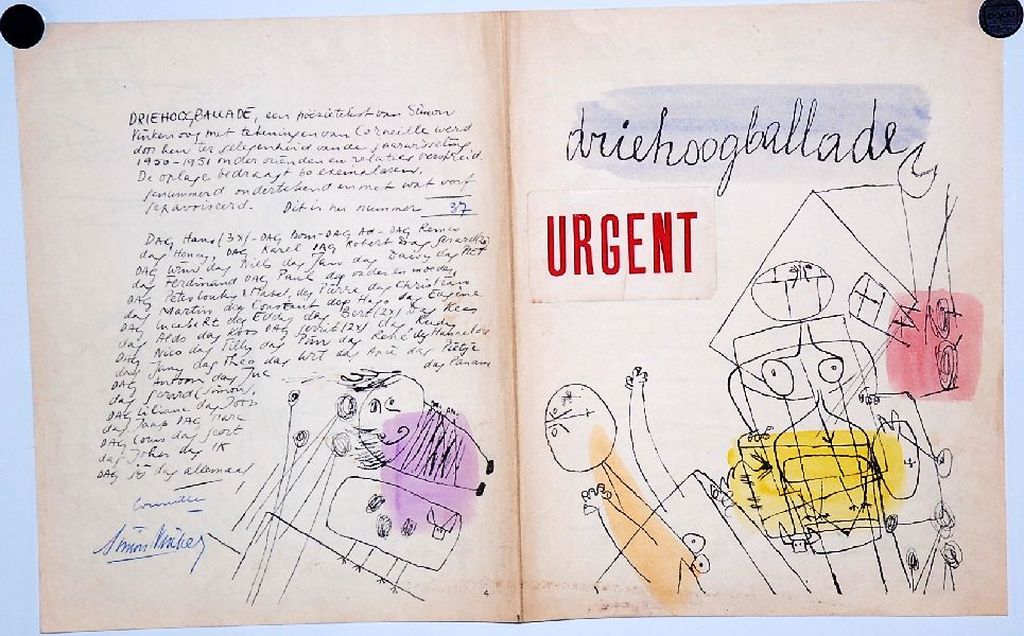 DRIEHOOGBALLADE, een poëzietekst van Simon
Vinkenoog met tekeningen van Corneille werd
door hen ter gelegenheid van de jaarwisseling
1950-1951 onder vrienden en relaties verspreid.
De oplage bedraagt 60 exemplaren,
genummerd ondertekend en met wat verf
gepavoiseerd. Dit is nummer 37
DAG Hans (3x) - DAG Bom - DAG Ad - DAG Remco
dag Henny, DAG Karel DAG Robert Dag
DAG Wim dag Nills dag Jan dag dag PIET
dag Ferdinand DAG Paul dag vader en moeder
DAG Peter Marcel dag Pierre dag Christiaan
dag Martin dag Constant dag Hugo dag Eugene
DAG Lucebert dag Eddy dag Bert (2x) Dag Kees
dag Aldo dag Koos DAG Gerrit (2x) dag Rudy
DAG Nico dag Tilly dag Pim dag René dag Hannelore
dag Jany dag Theo dag Wit dag Arie dag Pietje
DAG Antoon dag Luc dag Panam
dag Gerard (Simon)
DAG Liliane dag Joop
dag Jaap DAG Marc
DAG Louis dag Geert
dag IK
DAG dag allemaal
Corneille
Simon Vinkenoog
driehoogballade
URGENT